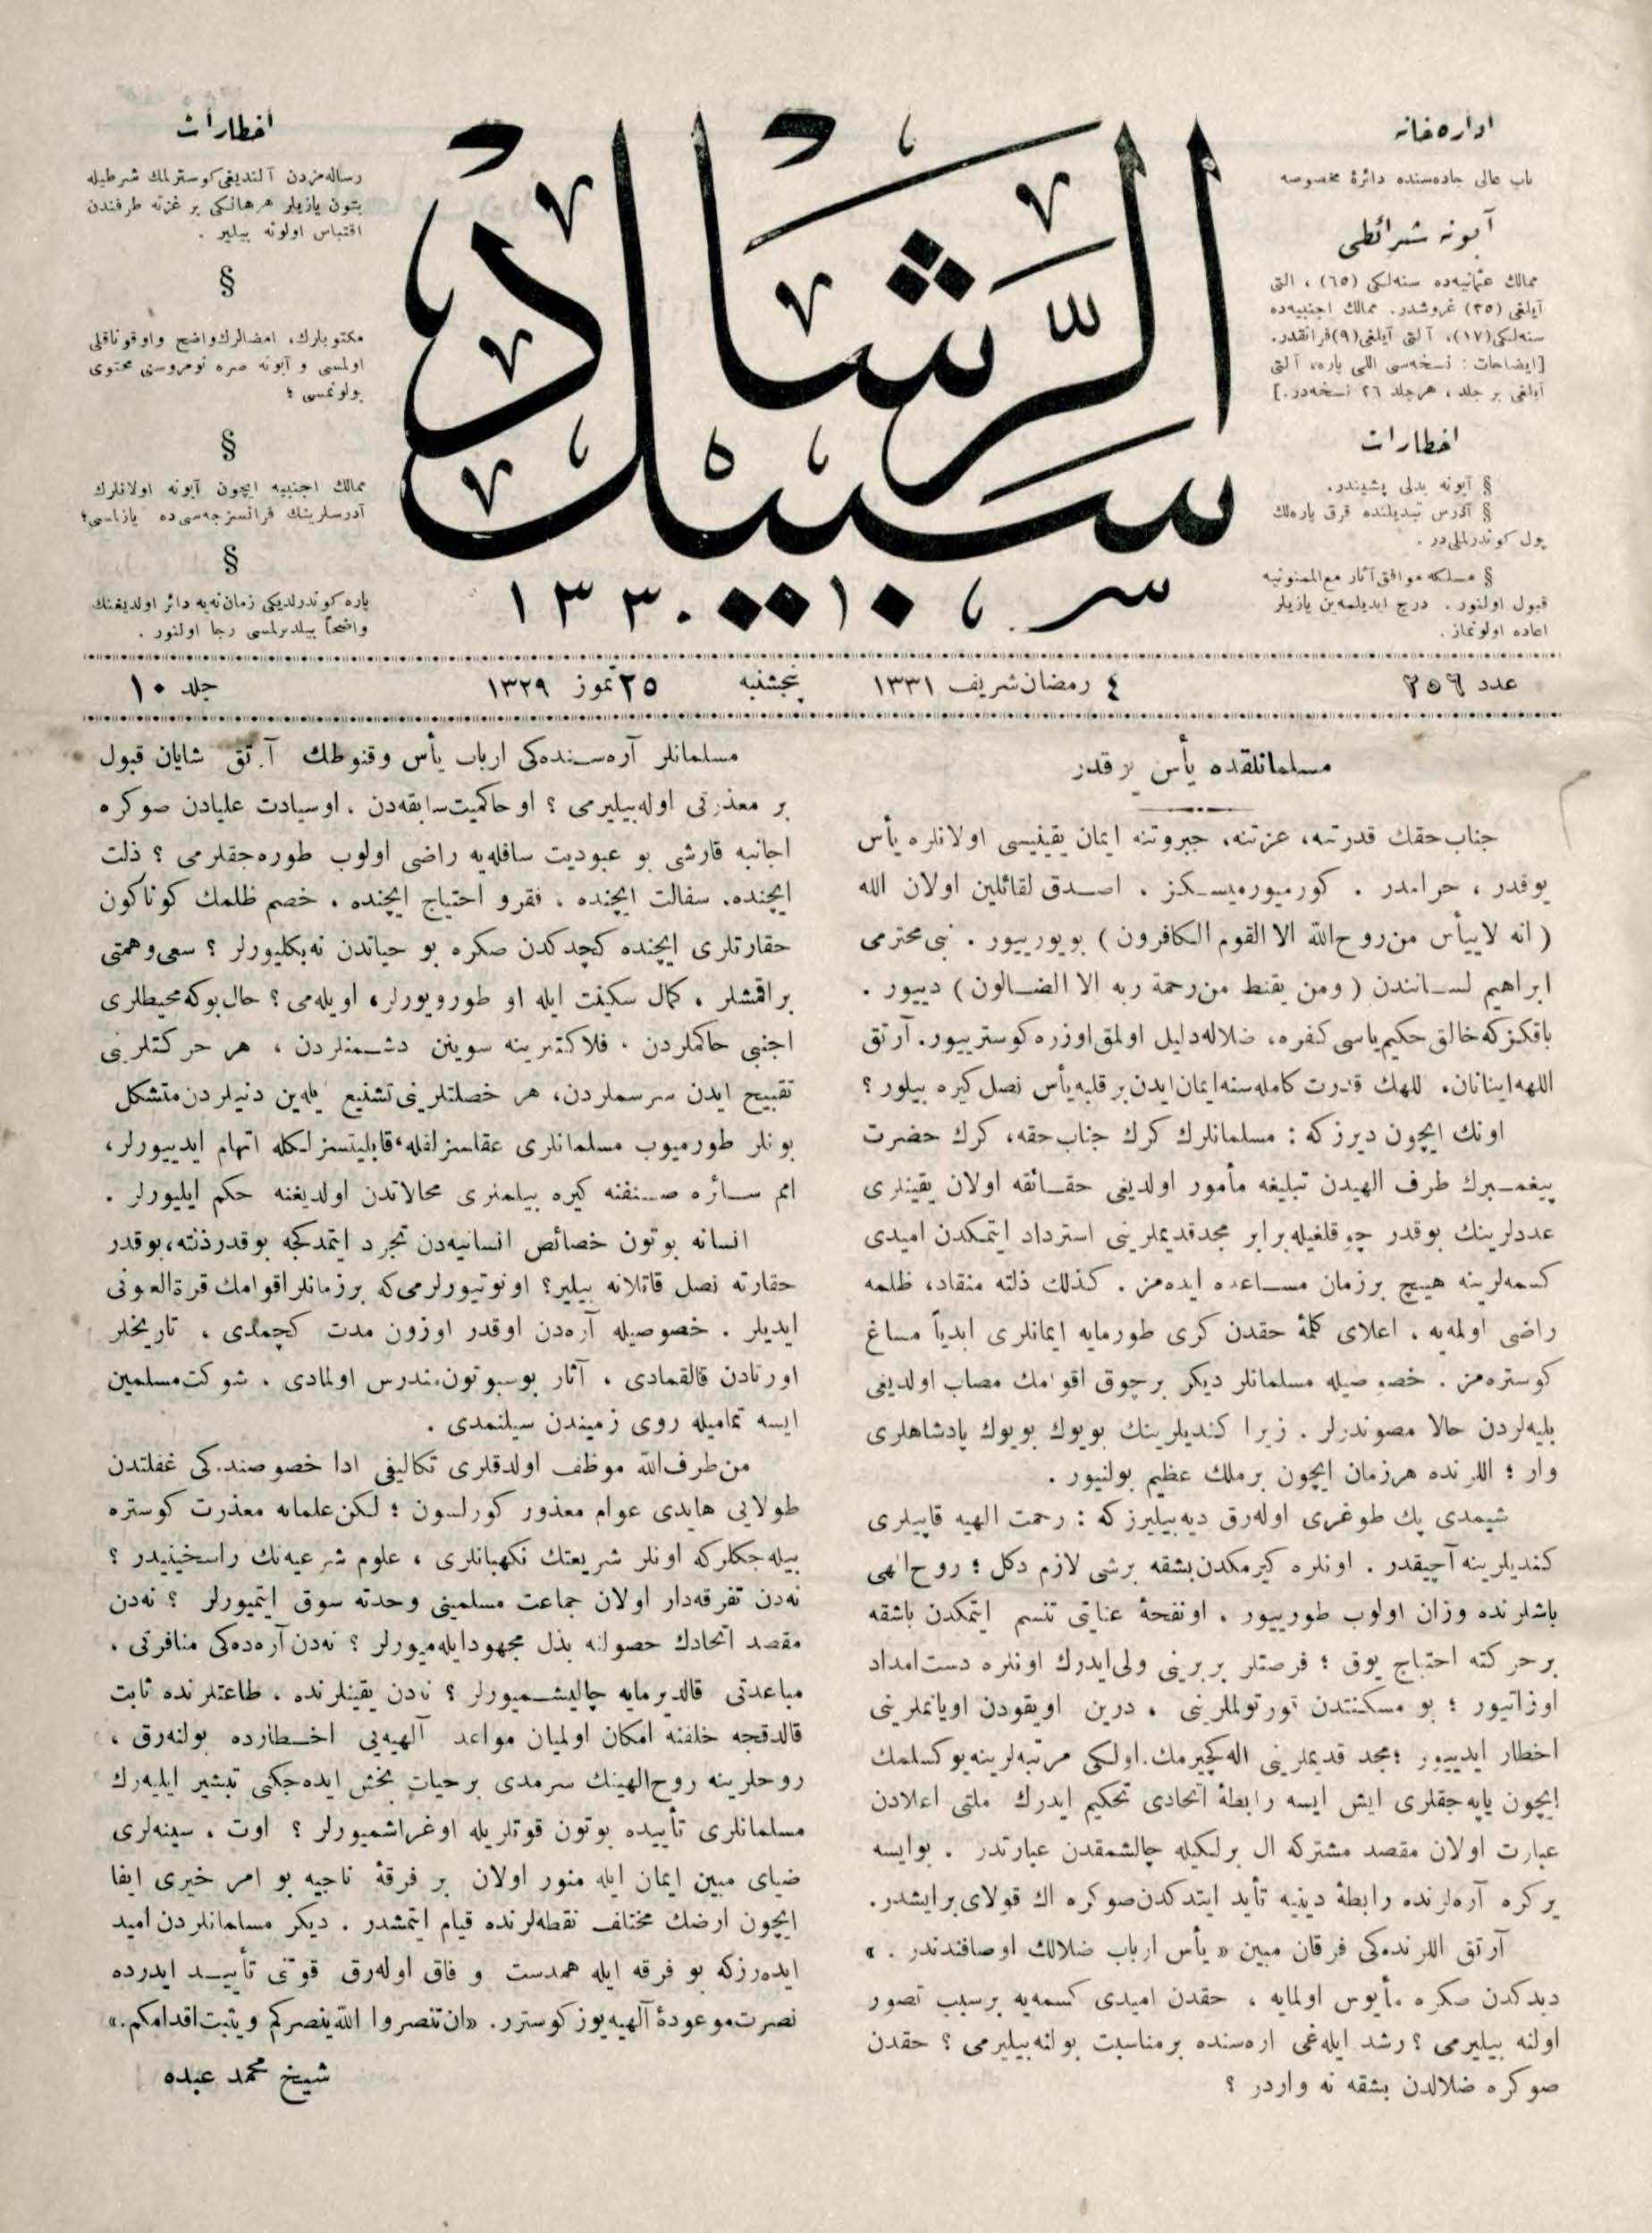 اداره خانه
باب عالى جاده‌سنده دائرۀ مخصوصه
آبونه شرائطى
ممالك عثمانيه‌ده سنه‌لكى (٦٥) ، التى
آيلغى (٣٥) غروشدر. ممالك اجنبيه‌ده
سنه‌لكى (١٧)، آلتى آيلغى (٩) فرانقدر.
[ايضاحات : نسخه‌سى اللى پاره، آلتى
آيلغى بر جلد ، هر جلد ٢٦ نسخه‌در.]
اخطارات
§ آبونه بدلى پشيندر.
§ آدرس تبديلنده قرق پاره‌لك
پول كوندرلملى‌در .
§ مسلكه موافق آثار مع الممنونيه
قبول اولنور . درج ايديلمه‌ين يازيلر
اعاده اولونماز .
سبيل الرشاد
١٣٣٠
اخطارات
رساله‌مزدن آلنديغى كوسترلمك شرطيله
بتون يازيلر هر هانكى بر غزته طرفندن
اقتباس اولونه بيلير .
§
مكتوبلرك، امضالرك واضح و اوقوناقلى
اولمسى و آبونه صره نومروسنى محتوى
بولونمسى ؛
§
ممالك اجنبيه ايچون آبونه اولانلرك
آدرسلرينك فرانسزجه‌سى ده يازلمسى؛
§
پاره كوندرلديكى زمان نه‌يه دائر اولديغنك
واضحاً بيلدرلمسى رجا اولنور .
عدد ٢٥٦
٤ رمضان شريف ١٣٣١
پنجشنبه
٢٥ تموز ١٣٢٩
جلد ١٠
مسلمانلقده يأس يوقدر
جناب حقك قدرتنه، عزتنه، جبروتنه ايمان يقينيسى اولانلره يأس
يوقدر ، حرامدر . كورميورميسكز . اصدق لقائلين اولان الله
( انه لاييأس من روح الله الا القوم الكافرون ) بويورييور . نبى محترمى
ابراهيم لسانندن ( ومن يقنط من رحمة ربه الا الضالون ) دييور .
باقكز كه خالق حكيم ياسى كفره، ضلاله دليل اولمق اوزره كوسترييور. آرتق
اللهه اينانان، للهك قدرت كامله‌سنه ايمان ايدن بر قلبه يأس نصل كيره بيلور ؟
اونك ايچون ديرز كه : مسلمانلرك كرك جناب حقه، كرك حضرت
پيغمبرك طرف الهيدن تبليغه مأمور اولديغى حقائقه اولان يقينلرى
عددلرينك بوقدر چوقلغيله برابر مجد قديملرينى استرداد ايتمكدن اميدى
كسمه‌لرينه هيچ بر زمان مساعده ايده‌مز . كذلك ذلته منقاد، ظلمه
راضى اولمه‌يه ، اعلاى كلمۀ حقدن كرى طورمايه ايمانلرى ابدياً مساغ
كوستره‌مز . خصوصيله مسلمانلر ديكر بر چوق اقوامك مصاب اولديغى
بليه‌لردن حالا مصوندرلر . زيرا كنديلرينك بويوك بويوك پادشاهلرى
وار ؛ اللرنده هر زمان ايچون بر ملك عظيم بولنيور .
شيمدى پك طوغرى اوله‌رق ديه بيليرز كه : رحمت الهيه قاپيلرى
كنديلرينه آچيقدر . اونلره كيرمكدن بشقه برشى لازم دكل ؛ روح الهى
باشلرنده وزان اولوب طورييور . او نفحۀ عنايتى تنسم ايتمكدن باشقه
بر حركته احتياج يوق ؛ فرصتلر بربرينى ولى ايدرك اونلره دست امداد
اوزاتيور ؛ بو مسكنتدن قورتولملرينى ، درين اويقودن اويانملرينى
اخطار ايدييور ؛ مجد قديملرينى اله كچيرمك. اولكى مرتبه‌لرينه يوكسلمك
ايچون ياپه جقلرى ايش ايسه رابطۀ اتحادى تحكيم ايدرك ملتى اعلادن
عبارت اولان مقصد مشتركه ال برلكيله چالشمقدن عبارتدر . بو ايسه
بر كره آره‌لرنده رابطۀ دينيه تأيد ايتدكدن صوكره اك قولاى بر ايشدر.
آرتق اللرنده‌كى فرقان مبين « يأس ارباب ضلالك اوصافندندر . »
ديدكدن صكره مأيوس اولمايه ، حقدن اميدى كسمه‌يه برسبب تصور
اولنه بيليرمى ؟ رشد ايله غى اره‌سنده بر مناسبت بولنه بيليرمى ؟ حقدن
صوكره ضلالدن بشقه نه واردر ؟
مسلمانلر آره‌سنده‌كى ارباب يأس و قنوطك آرتق شايان قبول
بر معذرتى اوله بيليرمى ؟ او حاكميت سابقه‌دن ، او سيادت عليادن صوكره
اجانبه قارشى بو عبوديت سافله‌يه راضى اولوب طوره جقلرمى ؟ ذلت
ايچنده، سفالت ايچنده ، فقرو احتياج ايچنده ، خصم ظلمك كوناكون
حقارتلرى ايچنده كچدكدن صكره بو حياتدن نه بكليورلر ؟ سعى و همتى
براقمشلر ، كمال سكينت ايله او طورويورلر، اويله‌مى ؟ حال بوكه محيطلرى
اجنبى حاكملردن ، فلاكتلرينه سوينن دشمنلردن ، هر حركتلرينى
تقبيح ايدن سرسملردن، هر خصلتلرينى تشنيع ايله‌ين دنيلردن متشكل
بونلر طورميوب مسلمانلرى عقلسزلقله، قابليتسزلكله اتهام ايدييورلر،
امم سائره صنفنه كيره بيلملرى محالاتدن اولديغنه حكم ايليورلر .
انسانه بوتون خصائص انسانيه‌دن تجرد ايتمدكجه بوقدر ذلته، بوقدر
حقارته نصل قاتلانه بيلير؟ اونوتيورلرمى كه بر زمانلر اقوامك قرة العيونى
ايديلر . خصوصيله آره‌دن اوقدر اوزون مدت كچمدى ، تاريخلر
اورتادن قالقمادى ، آثار بوسبوتون مندرس اولمادى ، شوكت مسلمين
ايسه تماميله روى زميندن سيلنمدى .
من طرف الله موظف اولدقلرى تكاليفى ادا خصوصنده‌كى غفلتدن
طولايى هايدى عوام معذور كورلسون ؛ لكن علمايه معذرت كوستره
بيله جكلركه اونلر شريعتك نكهبانلرى ، علوم شرعيه‌نك راسخينيدر ؟
نه‌دن تفرقه‌دار اولان جماعت مسلمينى وحدته سوق ايتميورلر ؟ نه‌دن
مقصد اتحادك حصولنه بذل مجهود ايله‌ميورلر ؟ نه‌دن آره‌ده‌كى منافرتى ،
مباعدتى قالديرمايه چاليشميورلر ؟ نه‌دن يقينلرنده ، طاعتلرنده ثابت
قالدقجه خلفنه امكان اولميان مواعد آلهيه‌يى اخطارده بولنه‌رق ،
روحلرينه روح الهينك سرمدى بر حيات بخش ايده جكنى تبشير ايليه‌رك
مسلمانلرى تأييده بوتون قوتلريله اوغراشميورلر ؟ اوت ، سينه‌لرى
ضياى مبين ايمان ايله منور اولان بر فرقۀ ناجيه بو امر خيرى ايفا
ايچون ارضك مختلف نقطه‌لرنده قيام ايتمشدر . ديكر مسلمانلردن اميد
ايده‌رزكه بو فرقه ايله همدست و فاق اوله‌رق قوتنى تأييد ايدرده
نصرت موعودۀ آلهيه يوز كوسترر. «ان تنصروا الله ينصركم ويثبت اقدامكم.»
شيخ محمد عبده